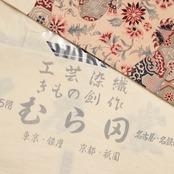 工芸染織
きもの創作
むら田
東京・銀座 京都・祇園
名古屋・名鉄
5階